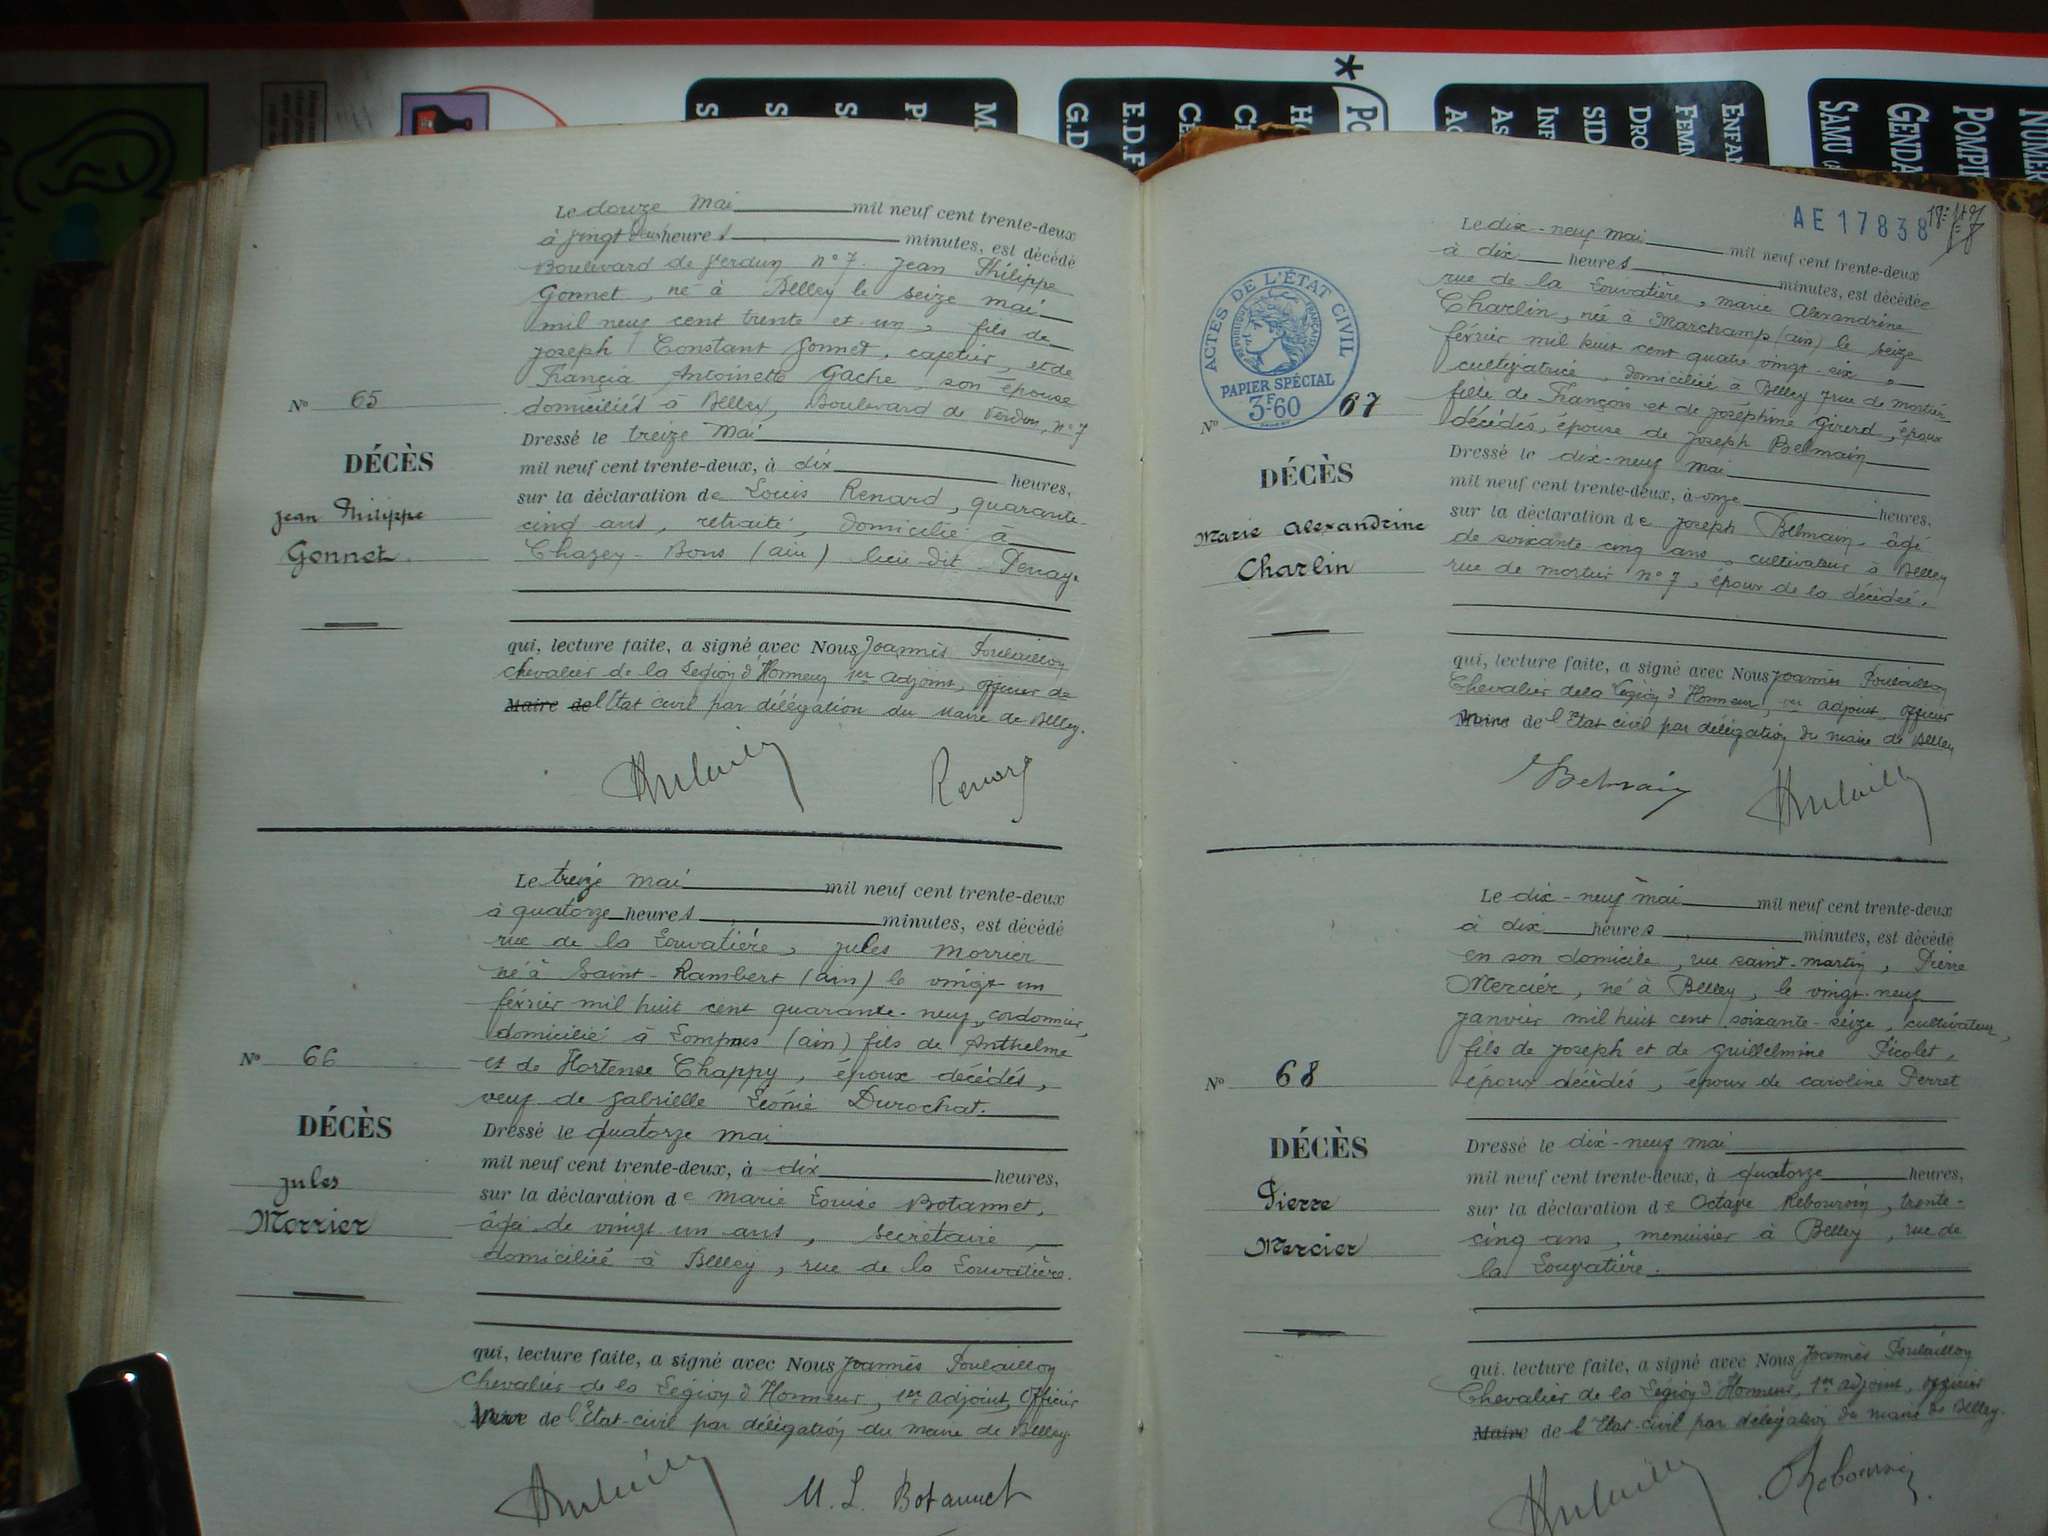 *
M
E.D.F
G.D.
SID
ENFAN
FEMM
DRO
INF
AS
NUMER
POMPIE
GENDA
SAMU
Le douze Mai mil neuf cent trente-deux
à vingt deux heures minutes, est décédé
Boulevard de Verdun n° 7. Jean Philippe
Gonnet, né à Belley le seize mai
mil neuf cent trente et un, fils de
Joseph Constant Gonnet, cafetier, et de
Françia Antoinette Gache, son épouse
N° 65
domiciliés à Belley, Boulevard de Verdun, n° 7
Dressé le treize Mai
DÉCÈS
mil neuf cent trente-deux, à dix heures,
sur la déclaration de Louis Renard, quarante-
Jean Philippe
cinq ans, retraité, domicilié à
Gonnet
Chazey-Bons (ain) lieu dit
qui, lecture faite, a signé avec Nous Joannès Poulaillon
Chevalier de la Légion d'Honneur 1er adjoint, officier de
Maire de l'Etat civil par délégation du Maire de Belley.
Renard
Le treize mai mil neuf cent trente-deux
à quatorze heures minutes, est décédé
rue de la Louvatière, Jules Morrier
né à Saint-Rambert (ain) le vingt un
février mil huit cent quarante-neuf, cordonnier,
domicilié à Lompnes (ain) fils de Anthelme
N° 66
et de Hortense Chappy, époux décédés,
veuf de Gabrielle Léonie Durochat.
DÉCÈS
Dressé le quatorze mai
mil neuf cent trente-deux, à dix heures,
Jules
sur la déclaration de Marie Louise Botannet,
Morrier
âgée de vingt un ans, secrétaire,
domiciliée à Belley, rue de la Louvatière.
qui, lecture faite, a signé avec Nous Joannès Poulaillon
Chevalier de la Légion d'Honneur, 1er adjoint, Officier
Maire de l'Etat-civil par délégation du maire de Belley.
M. L. Botannet
AE 17838
Le dix-neuf mai mil neuf cent trente-deux
à dix heures minutes, est décédée
rue de la Louvatière, Marie Alexandrine
Charlin, née à Marchamp (ain) le seize
février mil huit cent quatre vingt-six,
cultivatrice, domiciliée à Belley, rue de mortier
ACTES DE L'ÉTAT CIVIL
RÉPUBLIQUE FRANÇAISE
PAPIER SPÉCIAL
3F.60
N° 67
fille de François et de Joséphine Girerd, époux
décédés, épouse de Joseph Belmain
Dressé le dix-neuf mai
DÉCÈS
mil neuf cent trente-deux, à onze heures,
sur la déclaration de Joseph Belmain, âgé
Marie Alexandrine
de soixante cinq ans, cultivateur à Belley
Charlin
rue de mortier n° 7, époux de la décédée.
qui, lecture faite, a signé avec Nous Joannès Poulaillon
Chevalier de la Légion d'Honneur, 1er adjoint, officier
Maire de l'Etat civil par délégation du maire de Belley
Belmain
Le dix-neuf mai mil neuf cent trente-deux
à dix heures minutes, est décédé
en son domicile, rue saint-martin, Pierre
Mercier, né à Belley, le vingt-neuf
janvier mil huit cent soixante-seize, cultivateur,
fils de Joseph et de Guillelmine Picolet,
N° 68
époux décédés, époux de Caroline Perret
DÉCÈS
Dressé le dix-neuf mai
mil neuf cent trente-deux, à quatorze heures,
Pierre
sur la déclaration de Octave Reboursin, trente-
Mercier
cinq ans, menuisier à Belley, rue de
la Louvatière.
qui, lecture faite, a signé avec Nous Joannès Poulaillon
Chevalier de la Légion d'Honneur, 1er adjoint, officier
Maire de l'Etat-civil par délégation du maire de Belley.